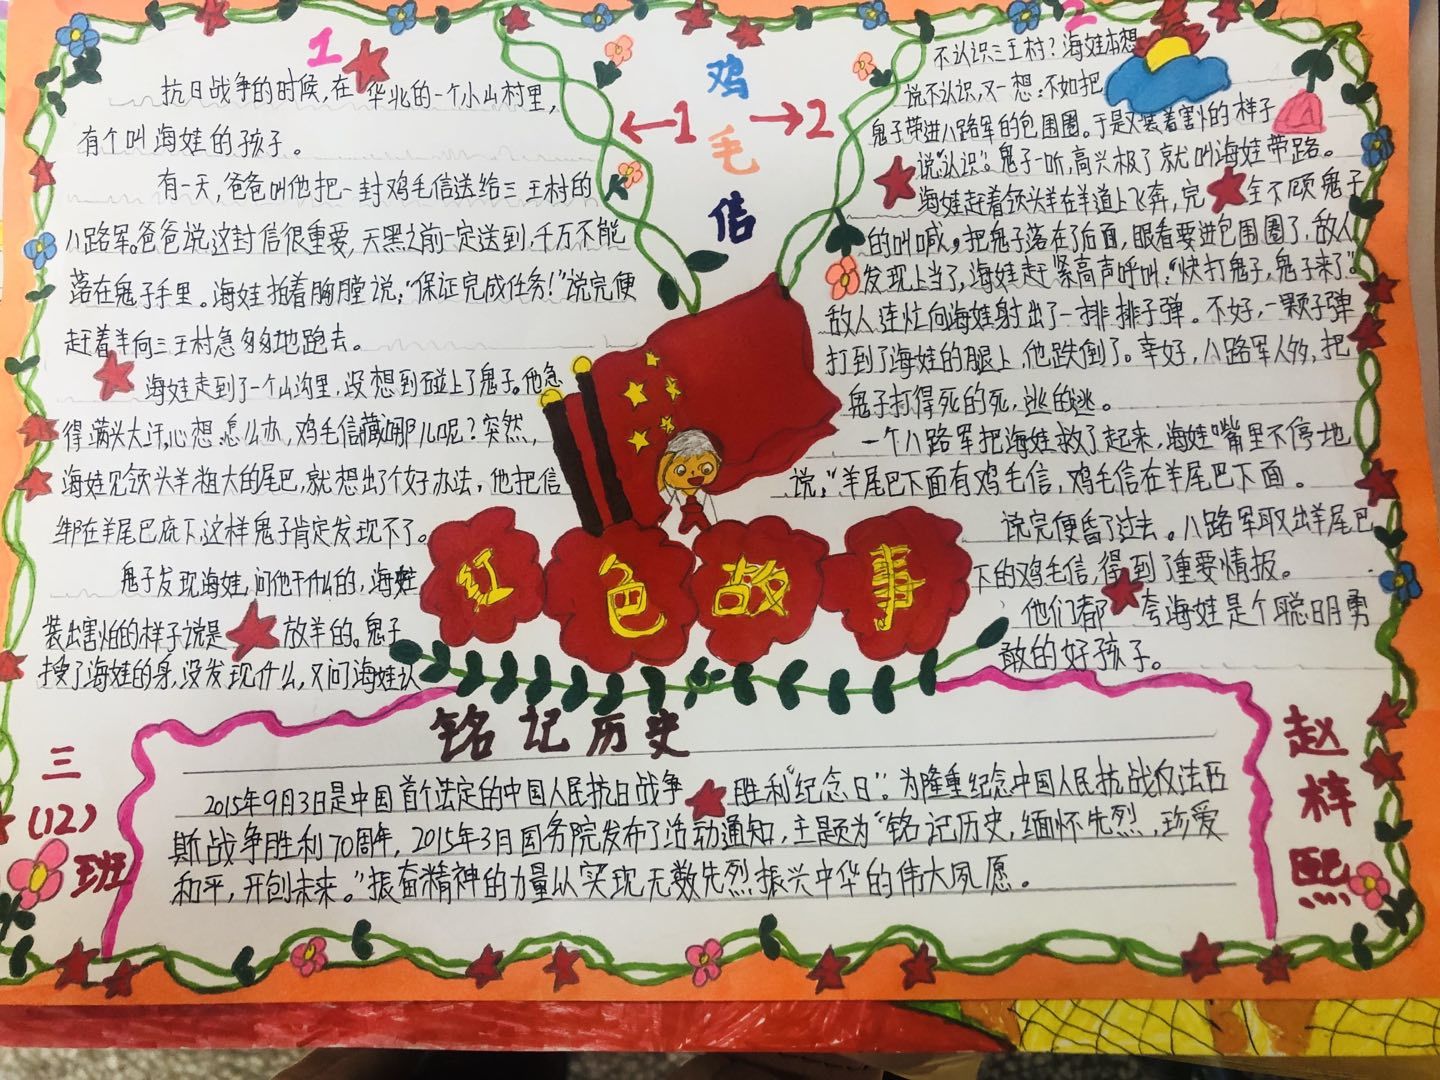 鸡毛信
←1 →2
1
抗日战争的时候,在华北的一个小山村里,
有个叫海娃的孩子。
有一天,爸爸叫他把一封鸡毛信送给三王村的
八路军。爸爸说,这封信很重要,天黑之前一定送到,千万不能
落在鬼子手里。海娃拍着胸膛说:“保证完成任务!”说完便
赶着羊向三王村急匆匆地跑去。
海娃走到了一个山沟里,没想到碰上了鬼子。他急
得满头大汗,心想,怎么办,鸡毛信藏哪儿呢?突然,
海娃见领头羊粗大的尾巴,就想出了个好办法,他把信
绑在羊尾巴底下,这样鬼子肯定发现不了。
鬼子发现海娃,问他干什么的,海娃
装出害怕的样子说是放羊的。鬼子
搜了海娃的身,没发现什么,又问海娃认
2
不认识三王村?海娃本想
说不认识,又一想:不如把
鬼子带进八路军的包围圈。于是又装着害怕的样子
说“认识”。鬼子一听,高兴极了就叫海娃带路。
海娃赶着领头羊在羊道上飞奔,完全不顾鬼子
的叫喊。把鬼子落在了后面,眼看要进包围圈了,敌人
发现上当了,海娃赶紧高声呼叫:“快打鬼子,鬼子来了。”
敌人连忙向海娃射出了一排排子弹。不好,一颗子弹
打到了海娃的腿上,他跌倒了。幸好,八路军人多,把
鬼子打得死的死,逃的逃。
一个八路军把海娃救了起来,海娃嘴里不停地
说:“羊尾巴下面有鸡毛信,鸡毛信在羊尾巴下面。
说完便昏了过去。八路军取出羊尾巴
下的鸡毛信,得到了重要情报。
他们都夸海娃是个聪明勇
敢的好孩子。
红色故事
铭记历史
2015年9月3日是中国首个法定的中国人民抗日战争胜利“纪念日”。为隆重纪念中国人民抗战及法西
斯战争胜利70周年,2015年3月国务院发布了活动通知,主题为“铭记历史,缅怀先烈,珍爱
和平,开创未来。”振奋精神的力量从实现无数先烈振兴中华的伟大夙愿。
三
(12)
班
赵梓熙